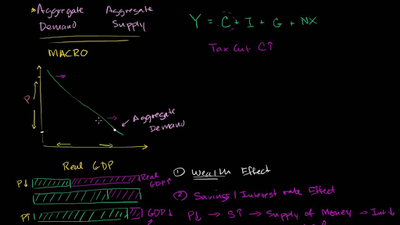 *Aggregate Demand
Aggregate Supply
Y = C + I + G + NX
Tax Cut C↑
MACRO
P
Aggregate Demand
Real GDP
① Wealth Effect
P↓
Real GDP↑
② Savings / Interest rate Effect
P↑
GDP↓
P↓ → S↑ → Supply of Money → Int↓